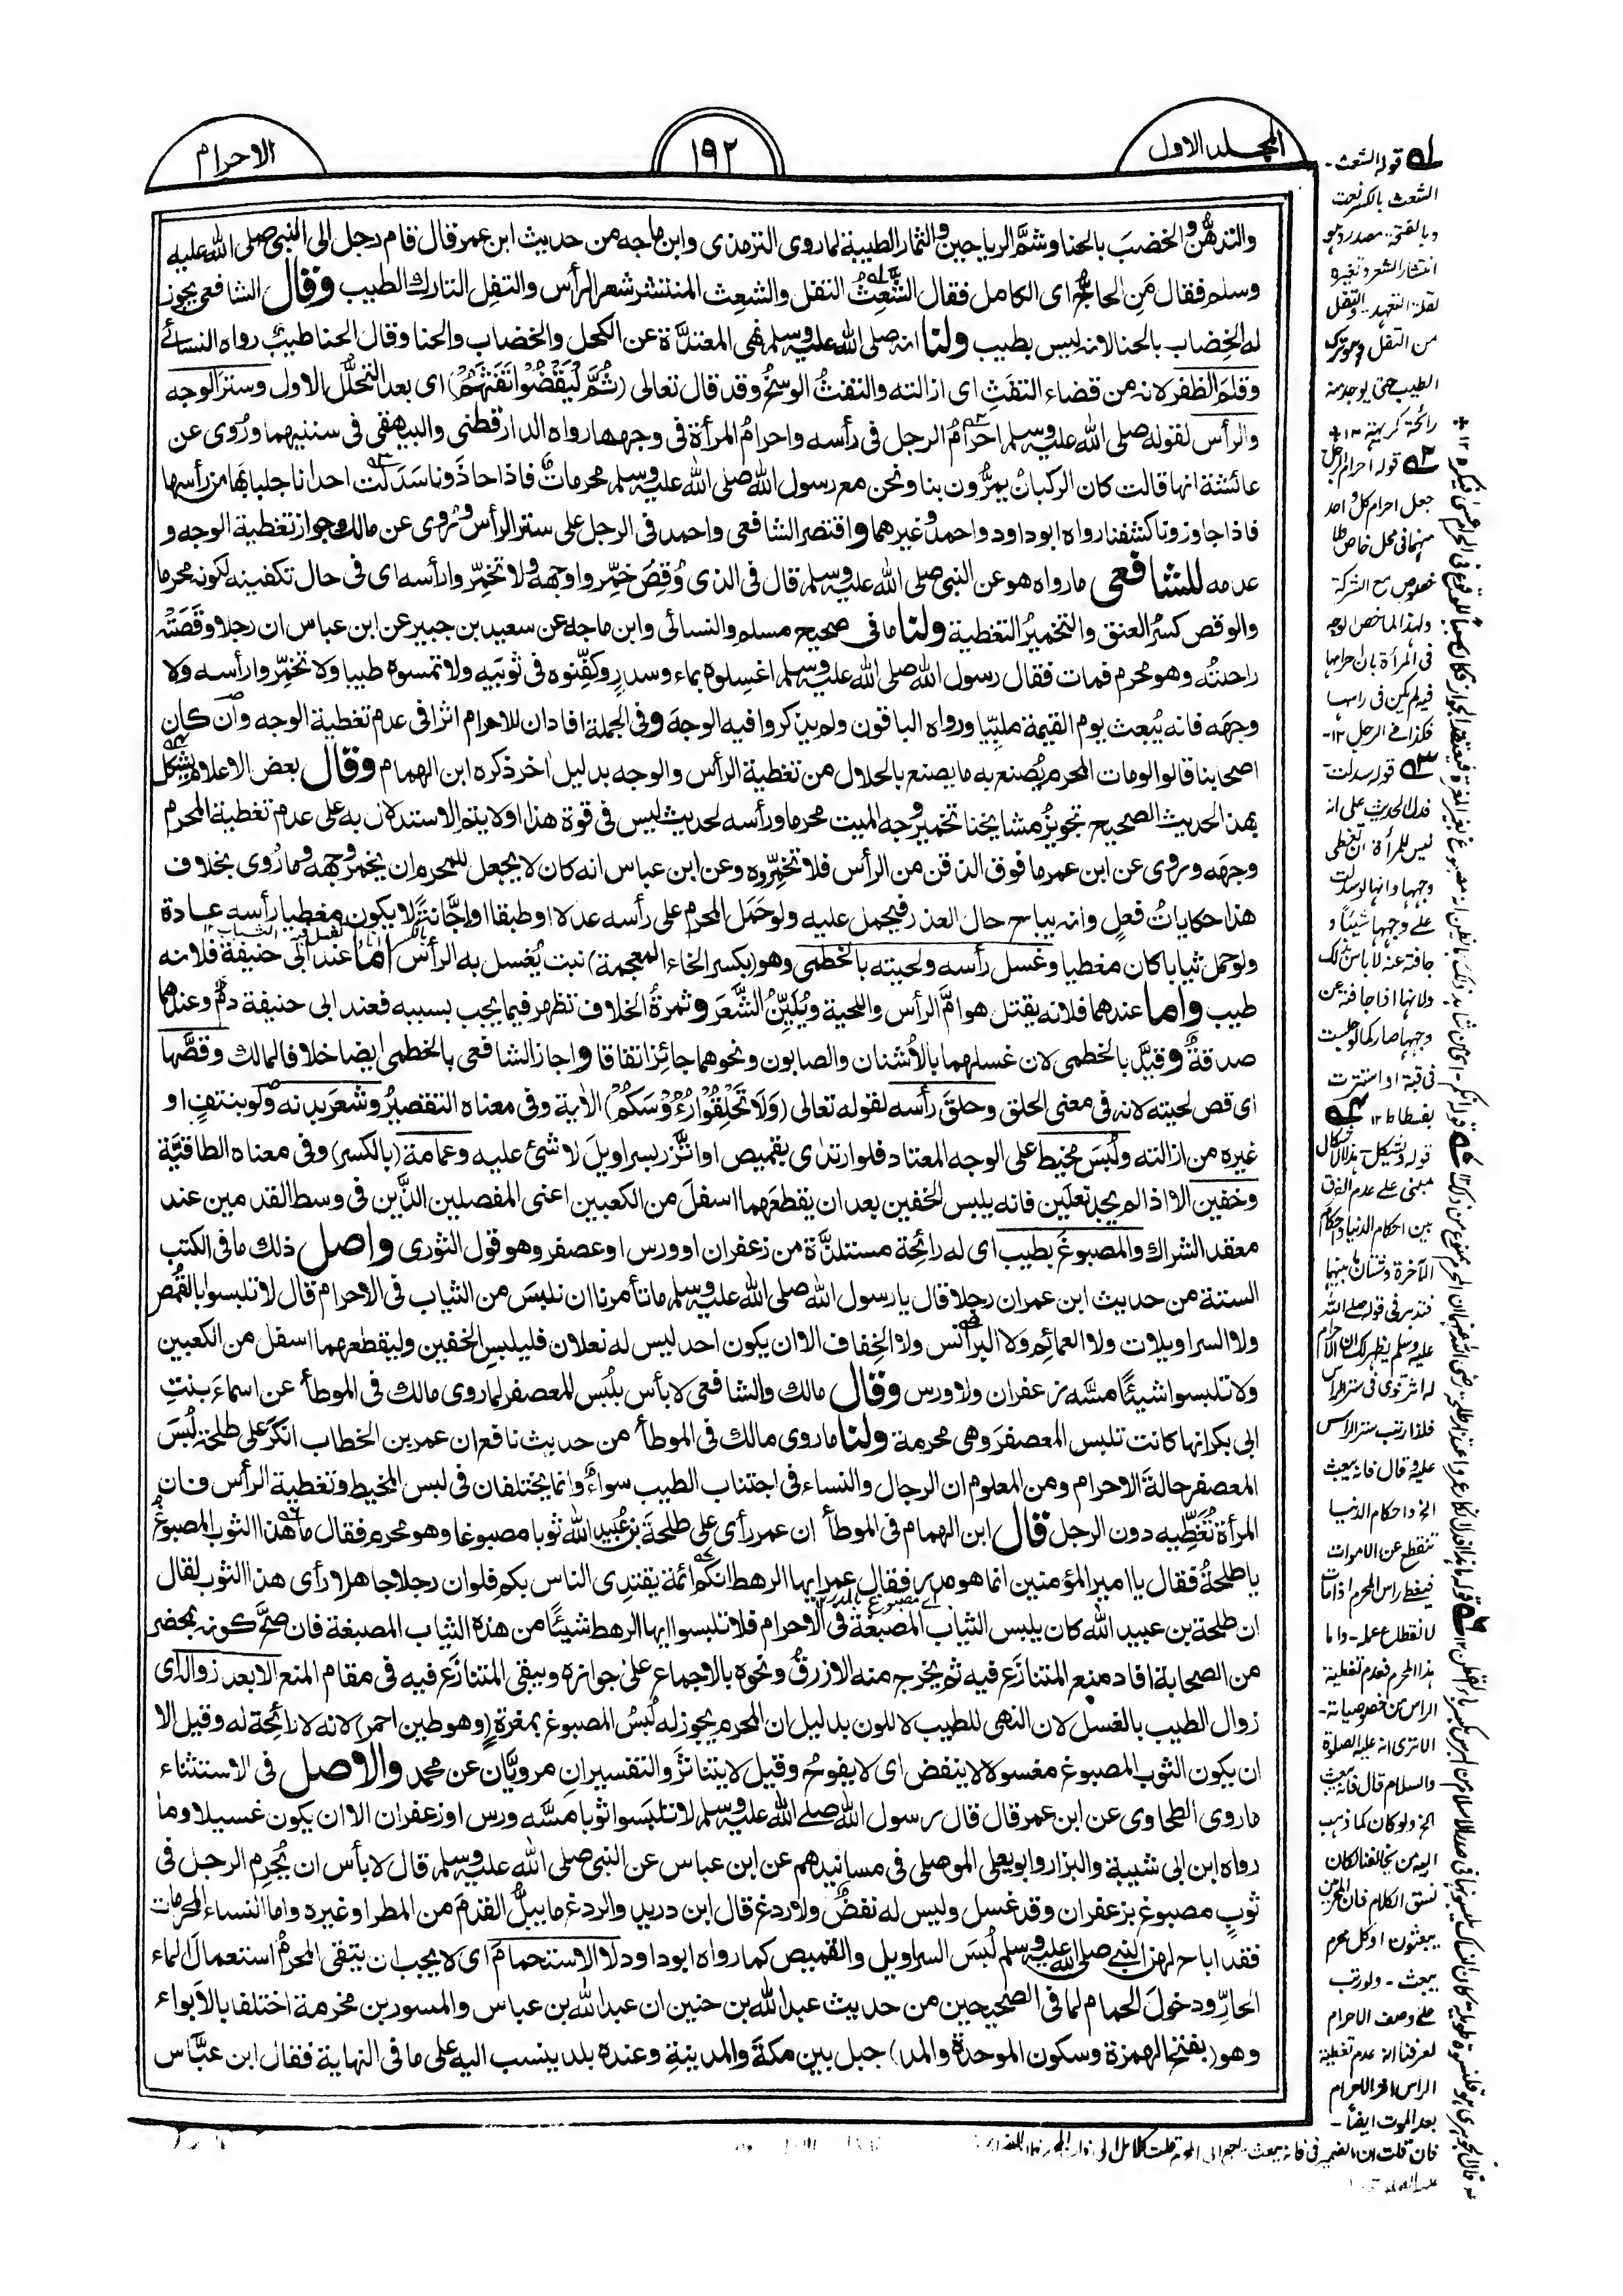 المجلد الاول
١٩٢
الاحرام
والتدهُّن والخضبَ بالحنا وشمَّ الرياحين والثمار الطيبة لما روى الترمذى وابن ماجه من حديث ابن عمر قال قام رجل الى النبى صلى الله عليه
وسلم فقال مَنِ الحاج اى الكامل فقال الشَّعِثُ التفل والشعِث المنتشر شعر الرأس والتفِل التارك الطيب وقال الشافعى يجوز
له الخِضاب بالحنا لانه ليس بطيب ولنا انه صلى الله عليه وسلم نهى المعتدَّة عن الكحل والخضاب والحنا وقال الحنا طيبٌ رواه النسائے
وقلمَ الظفر لانه من قضاء التفَثِ اى ازالته والتفثُ الوسخُ وقد قال تعالى (ثُمَّ لْيَقْضُوْا تَفَثَهُمْ) اى بعد التحلُّل الاول وسترَ الوجه
والرأس لقوله صلى الله عليه وسلم احرامُ الرجل فى رأسه واحرامُ المرأة فى وجهها رواه الدارقطنى والبيهقى فى سننيهما ورُوى عن
عائشة انها قالت كان الركبانُ يمرُّون بنا ونحن مع رسول الله صلى الله عليه وسلم محرماتٌ فاذا حاذَونا سَدَلت احدانا جلبابَها من رأسها
فاذا جاوزونا كشفنا رواه ابوداود واحمد وغيرهما واقتصر الشافعى واحمد فى الرجل على ستر الرأس وروى عن مالك جواز تغطية الوجه و
عدمه للشافعى ما رواه هو عن النبى صلى الله عليه وسلم قال فى الذى وُقِصَ خمِّروا وجهه ولا تخمِّروا رأسه اى فى حال تكفينه لكونه محرما
والوقص كسرُ العنق والتخميرُ التغطية ولنا ما فى صحيح مسلم والنسائى وابن ماجه عن سعيد بن جبير عن ابن عباس ان رجلا وقَصَتْه
راحلتُه وهو محرم فمات فقال رسول الله صلى الله عليه وسلم اغسِلوه بماء وسدرٍ وكفِّنوه فى ثوبَيه ولا تمسوه طيبا ولا تخمِّروا رأسه ولا
وجهَه فانه يُبعث يوم القيٰمة ملبِّيا ورواه الباقون ولم يذكروا فيه الوجهَ وفى الجملة افاد ان للاحرام اثرا فى عدم تغطية الوجه وان كان
اصحابنا قالوا لو مات المحرم يُصنع به ما يصنع بالحلال من تغطية الرأس والوجه بدليل اٰخر ذكره ابن الهمام وقال بعض الاعلام يشكل
بهذا الحديث الصحيح تجويزُ مشايخنا تخميرَ وجه الميت محرما ورأسه لحديث ليس فى قوة هذا اولا يتم الاستدلال به على عدم تغطية المحرم
وجهَه وروى عن ابن عمر ما فوق الذقن من الرأس فلا تخمِّروه وعن ابن عباس انه كان لا يجعل للمحرم ان يخمر وجهَه وما رُوى بخلاف
هذا حكاياتُ فعلٍ وانه يباح حال العذر فيحمل عليه ولو حَمَل المحرم على رأسه عدلا او طبقا او اجَّانةً لا يكون مغطيا رأسه عادة
ولو حمل ثيابا كان مغطيا وغَسل رأسه ولحيته بالخطمى وهو (بكسر الخاء المعجمة) نبت يُغسل به الرأس اما عند ابى حنيفة فلانه
طيب واما عندهما فلانه يقتل هوامَّ الرأس واللحية ويُلَيِّنُ الشَّعَر وثمرةُ الخلاف تظهر فيما يجب بسببه فعند ابى حنيفة دمٌ وعندهما
صدقةٌ وقيَّد بالخطمى لان غسلهما بالاُشنان والصابون ونحوهما جائز اتفاقا واجاز الشافعى بالخطمى ايضا خلافا لمالك وقصَّها
اى قص لحيته لانه فى معنى الحلق وحلقَ رأسه لقوله تعالى (وَلَا تَحْلِقُوْا رُءُوْسَكُمْ) الاٰية وفى معناه التقصيرُ وشعَر بدنه ولو بنتفٍ او
غيره من ازالته ولُبسَ مخيط على الوجه المعتاد فلو ارتدٰى بقميص او اتَّزر بسراويلَ لا شئ عليه وعمامة (بالكسر) وفى معناه الطاقيَّة
وخفين الا اذا لم يجد نعلَين فانه يلبس الخفين بعد ان يقطعَهما اسفلَ من الكعبين اعنى المفصلين الذَّين فى وسط القدمين عند
معقد الشراك والمصبوغَ بطيب اى له رائحة مستلذَّة من زعفران او ورس او عصفر وهو قول الثورى واصل ذلك ما فى الكتب
الستة من حديث ابن عمر ان رجلا قال يا رسول الله صلى الله عليه وسلم ما تأمرنا ان نلبسَ من الثياب فى الاحرام قال لا تلبسوا القُمُص
ولا السراويلات ولا العمائم ولا البرانس ولا الخِفاف الا ان يكون احد ليس له نعلان فليلبسِ الخفين وليقطعهما اسفل من الكعبين
ولا تلبسوا شيئًا مسَّه زعفران ولا ورس وقال مالك والشافعى لا بأس بلُبَس المعصفر لما روى مالك فى الموطأ عن اسماء بنتِ
ابى بكر انها كانت تلبس المعصفر وهى محرمة ولنا ما روى مالك فى الموطأ من حديث نافع ان عمر بن الخطاب انكرَ على طلحة لُبسَ
المعصفر حالةَ الاحرام ومن المعلوم ان الرجال والنساء فى اجتناب الطيب سواءٌ وانما يختلفان فى لبس المخيط وتغطية الرأس فان
المرأة تُغَطِّيه دون الرجل قال ابن الهمام فى الموطأ ان عمر رأى على طلحةَ بن عُبيد الله ثوبا مصبوغا وهو محرم فقال ما هذا الثوب المصبوغُ
يا طلحةُ فقال يا امير المؤمنين انما هو مدر فقال عمر ايها الرهط انكم ائمة يقتدى الناس بكم فلو ان رجلا جاهلا رأى هذا الثوب لقال
ان طلحة بن عبيد الله كان يلبس الثياب المصبغة فى الاحرام فلا تلبسوا ايها الرهط شيئًا من هذه الثياب المصبغة فان صحَّ كونه بمحضر
من الصحابة افاد منع المتنازَع فيه ثم يخرج منه الازرقُ ونحوه بالاجماع على جوازه ويبقى المتنازَع فيه فى مقام المنع الا بعد زواله اى
زوال الطيب بالغسل لان النهى للطيب لا للون بدليل ان المحرم يجوز له لُبسُ المصبوغ بمغرةٍ (وهو طين احمر) لانه لا رائحة له وقيل الا
ان يكون الثوب المصبوغ مغسولا لا ينفض اى لا يفوحُ وقيل لا يتناثرُ والتفسيران مرويَّان عن محمد والاصل فى الاستثناء
ما روى الطحاوى عن ابن عمر قال قال رسول الله صلے الله عليه وسلم لا تلبَسوا ثوبا مسَّه ورس او زعفران الا ان يكون غسيلا وما
رواه ابن ابى شيبة والبزار وابو يعلى الموصلى فى مسانيدهم عن ابن عباس عن النبى صلى الله عليه وسلم قال لا بأس ان يُحرم الرجل فى
ثوبٍ مصبوغ بزعفران وقد غسل وليس له نفضٌ ولا ردغ قال ابن دريد والردغ ما يبلُّ القدمَ من المطر او غيره واما النساء المحرمات
فقد اباح لهن النبے صلى الله عليه وسلم لُبسَ السراويل والقميص كما رواه ابوداود لا الاستحمامَ اى لا يجب ان يتقى المحرمُ استعمالَ الماء
الحارّ ودخولَ الحمام لما فى الصحيحين من حديث عبد الله بن حنين ان عبد الله بن عباس والمسور بن مخرمة اختلفا بالابواء
وهو (بفتح الهمزة وسكون الموحدة والمد) جبل بين مكة والمدينة وعنده بلد ينسب اليه على ما فى النهاية فقال ابن عبَّاس
قوله الشعث -
الشعث بالكسر نعت
وبالفتحة مصدر وهو
انتشار الشعر وتغيره
لقلة التعهد والتفل
من التفل وهو ترك
الطيب حتى يوجد منه
رائحة كريهة ١٢
قوله احرام الرجل
جعل احرام كل واحد
منهما فى محل خاص
خصوص مع الشركة
ولهذا لما خص الوجه
فى المرأة بان احرامها
فيه لم يكن فى راسها
فكذا فى الرجل ١٢-
قوله سدلت-
فدل الحديث على انه
ليس للمرأة ان تغطى
وجهها وانها لو سدلت
على وجهها شيئا و
جافته عنه لا باس بذلك
ولانها اذا جافته عن
وجهها صار كما لو جلست
فى قبة او استترت
بفسطاط ١٢
قوله ويشكل- هذا الاشكال
مبنى على عدم الفرق
بين احكام الدنيا واحكام
الآخرة وشتان بينهما
فتدبر فى قوله صلى الله
عليه وسلم يظهر لك ان الاحرام
له اثر قوى فى ستر الراس
فلذا رتب ستر الراس
عليه وقال فانه يبعث
الخ واحكام الدنيا
تنقطع عن الاموات
فيغطى راس المحرم اذا مات
لانقطاع عمله- واما
هذا المحرم فعدم تغطية
الراس من خصوصياته-
الا ترى انه عليه الصلوة
والسلام قال فانه يبعث
الخ ولو كان كما ذهب
اليه من خالفنا لكان
نسق الكلام فان المحرمين
يبعثون او كل محرم
يبعث - ولو رتب
على وصف الاحرام
لعرفنا ان عدم تغطية
الراس اثر الاحرام
بعد الموت ايضا-